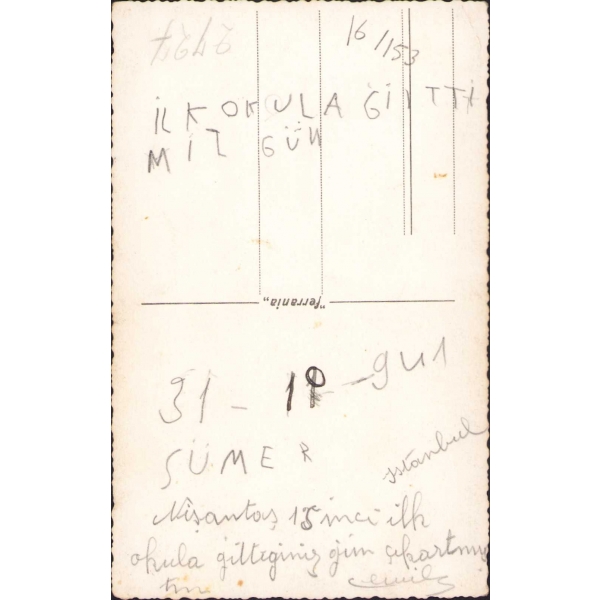 2427
16/153
İLK OKULA GİTTİ
MİZ GÜN
"ferrania"
31 - 19 - 941
SÜMER
istanbul
Nişantaş 15 inci ilk
okula gittiğiniz gün çıkartmış